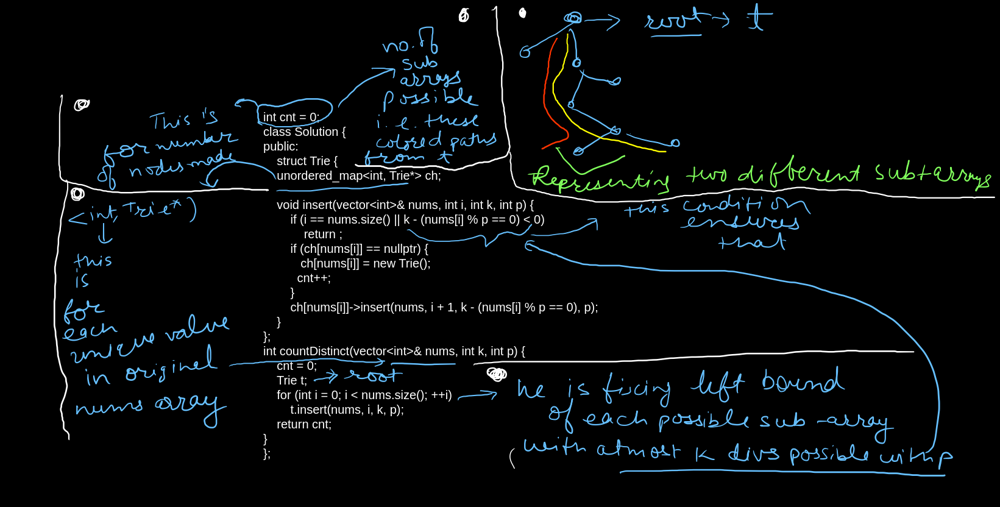 no. of
sub
arrays
possible
i.e. these
colored paths
from t
root → t
Representing two different sub-arrays
This is
for number
of nodes made
int cnt = 0;
class Solution {
public:
struct Trie {
unordered_map<int, Trie*> ch;
void insert(vector<int>& nums, int i, int k, int p) {
if (i == nums.size() || k - (nums[i] % p == 0) < 0)
return ;
if (ch[nums[i]] == nullptr) {
ch[nums[i]] = new Trie();
cnt++;
}
ch[nums[i]]->insert(nums, i + 1, k - (nums[i] % p == 0), p);
}
};
int countDistinct(vector<int>& nums, int k, int p) {
cnt = 0;
Trie t; → root
for (int i = 0; i < nums.size(); ++i)
t.insert(nums, i, k, p);
return cnt;
}
};
<int, Trie*)
this
is
for
each
unique value
in original
nums array
this condition
ensures
that
he is fixing left bound
of each possible sub-array
(with atmost k divs possible with p